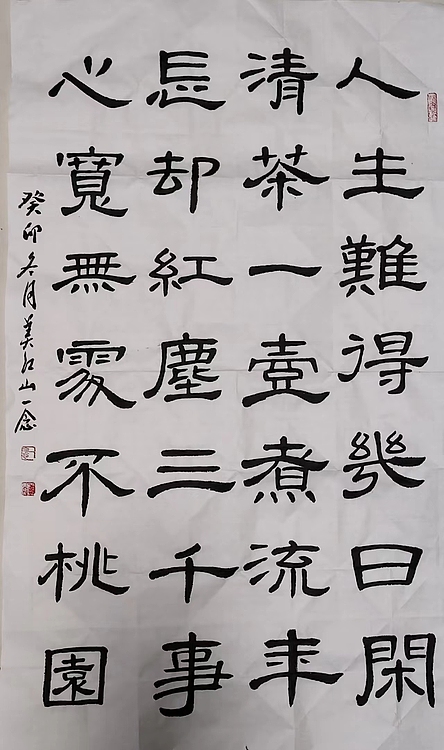 人生難得幾日閑
清茶一壺煮流年
忘却紅塵三千事
心寬無處不桃園
癸卯冬月山一念